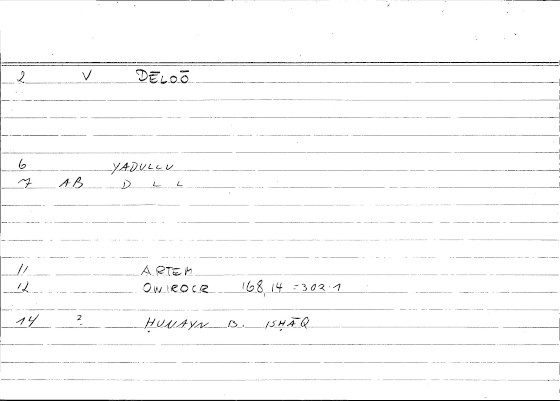 2 V DĒLOŌ
6 YADULLU
7 AB D L L
11 ARTEM
12 ONIROCR 168,14 = 302.1
14 ? ḤUNAYN B. ISḤĀQ